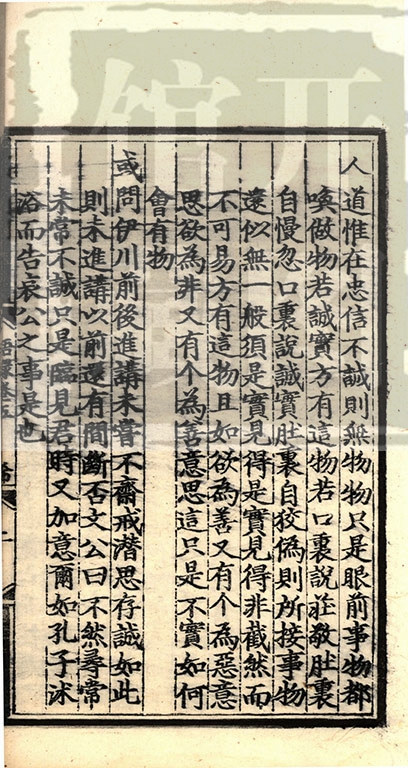 人道惟在忠信不誠則無物物只是眼前事物都
喚做物若誠實方有這物若口裏說莊敬肚裏
自慢忽口裏說誠實肚裏自狡偽則所接事物
還似無一般須是實見得是實見得非截然而
不可易方有這物且如欲為善又有个為惡意
思欲為非又有个為善意思這只是不實如何
會有物
或問伊川前後進講未嘗不齋戒潛思存誠如此
則未進講以前還有間斷否文公曰不然尋常
未常不誠只是臨見君時又加意爾如孔子沐
浴而告哀公之事是也